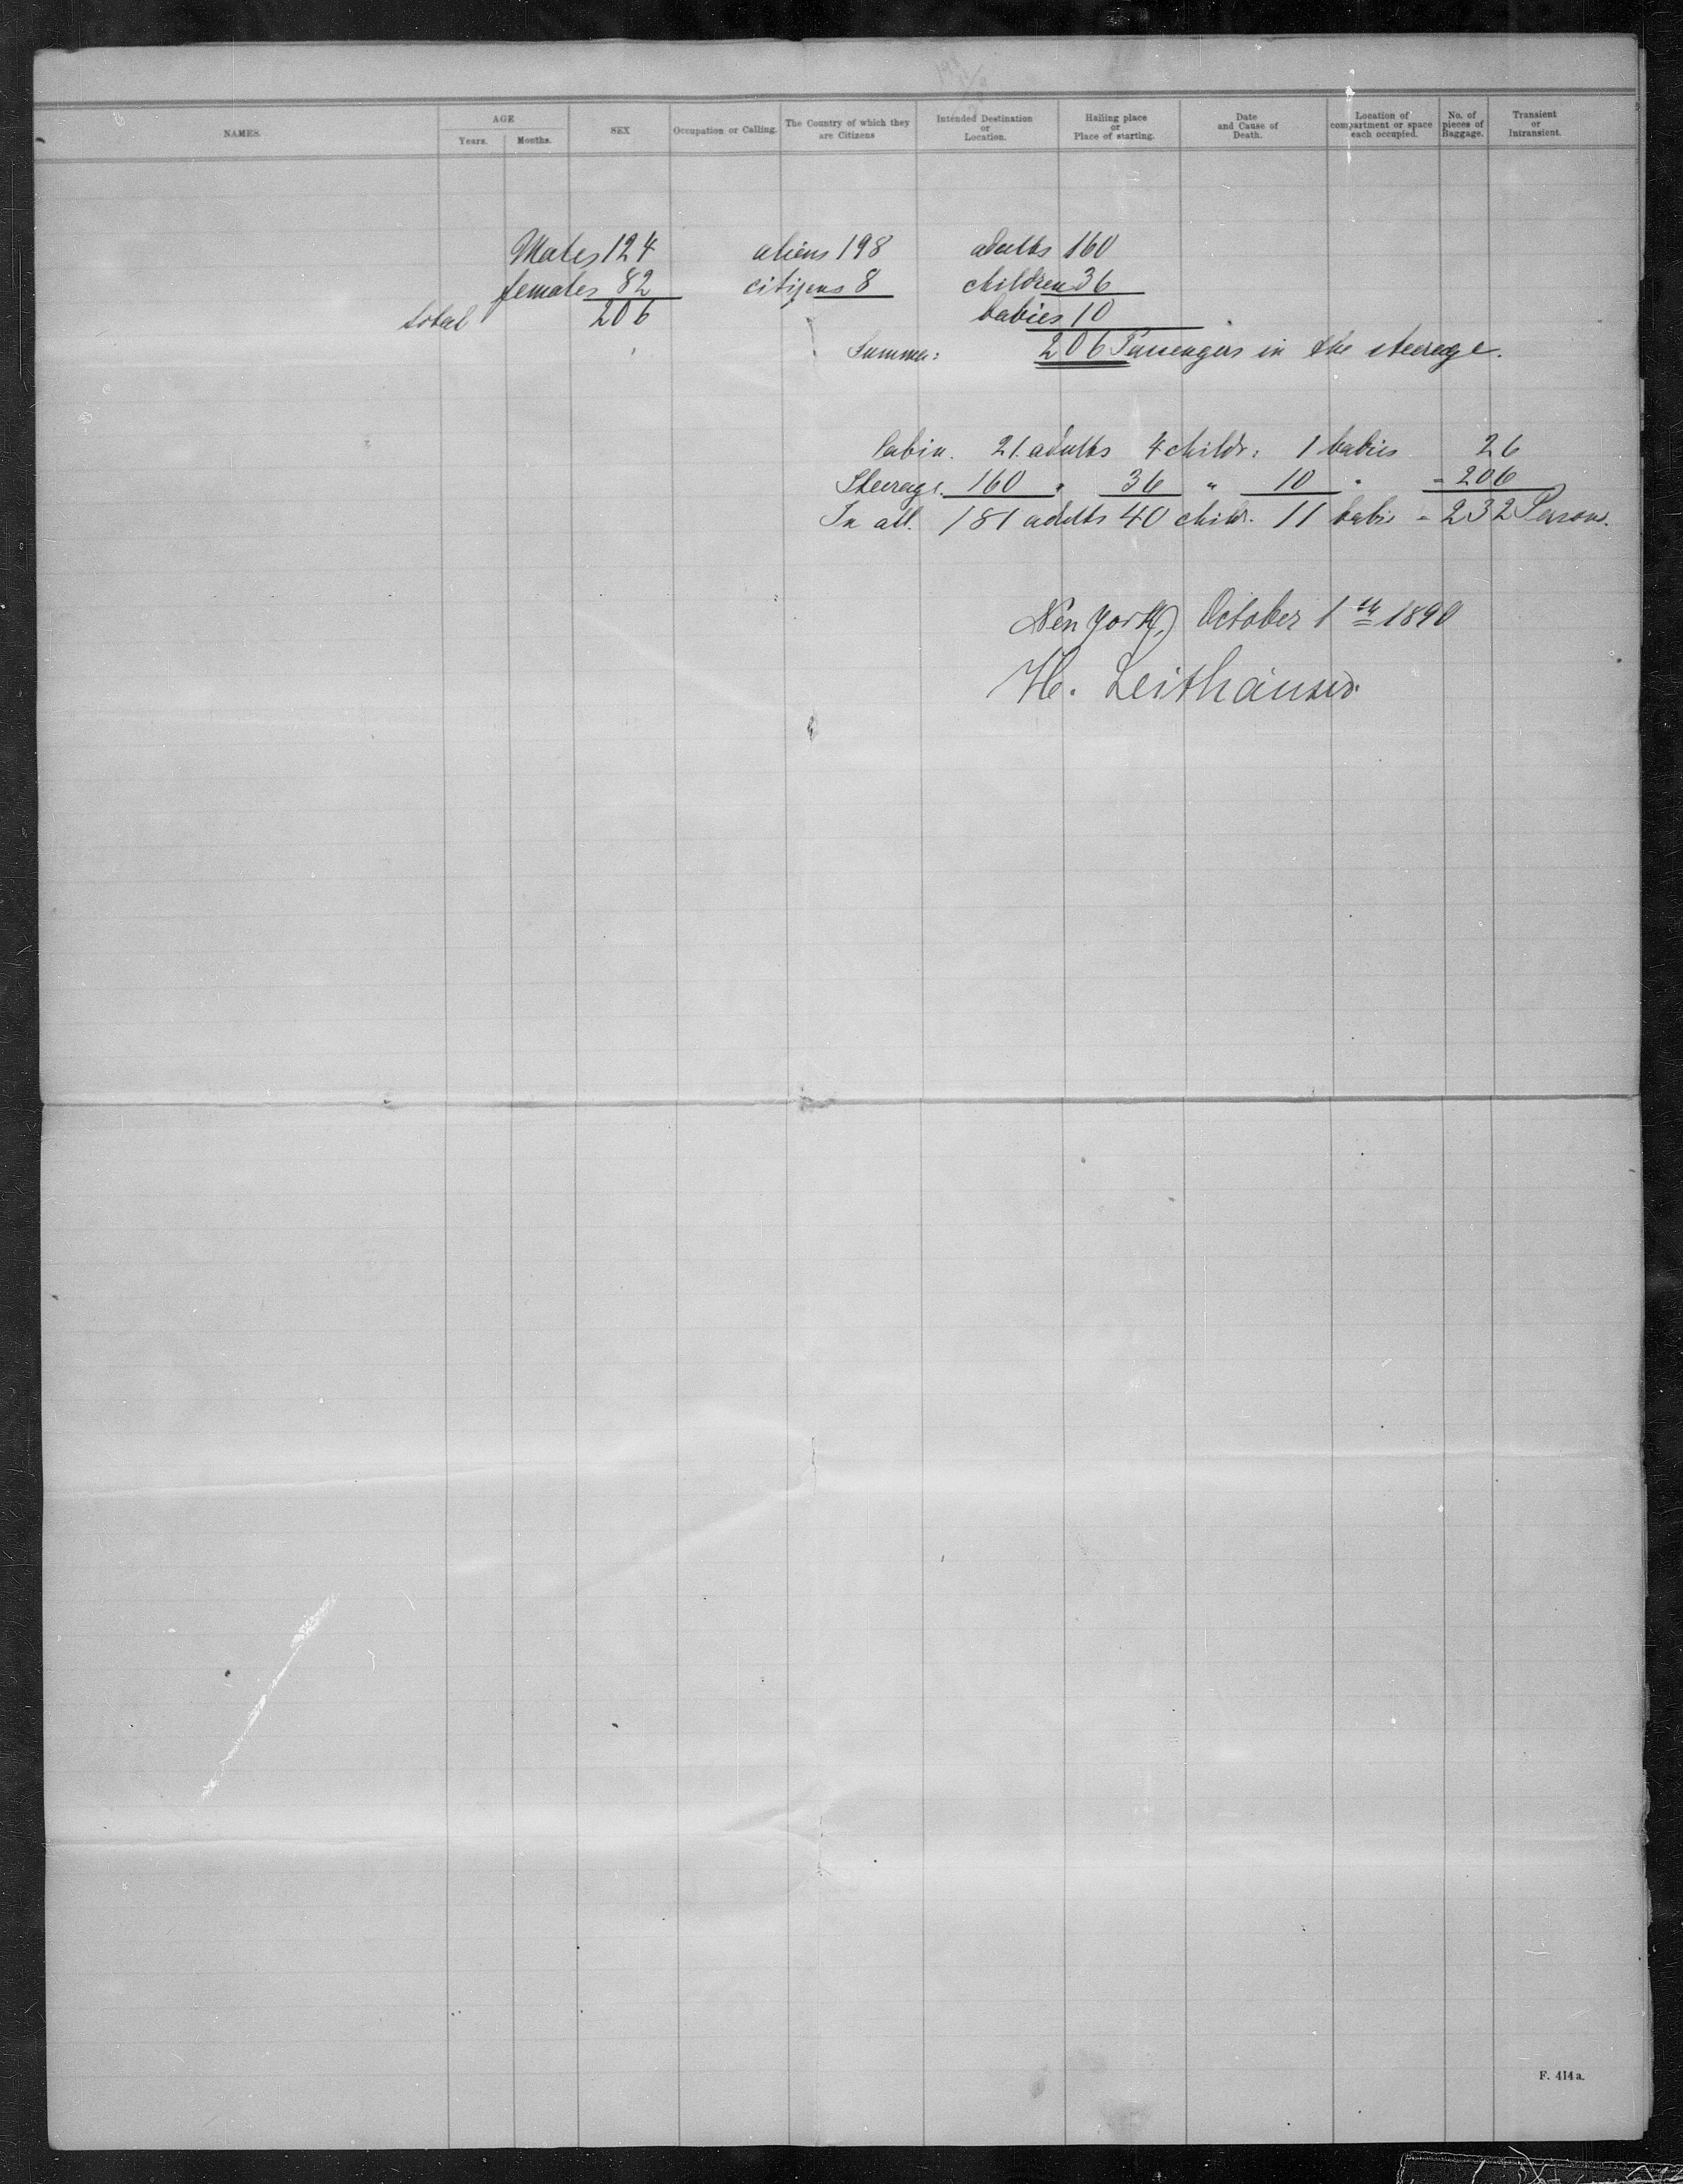 NAMES.
AGE
Years.
Months.
SEX
Occupation or Calling.
The Country of which they
are Citizens
Intended Destination
or
Location.
Hailing place
or
Place of starting.
Date
and Cause of
Death.
Location of
compartment or space
each occupied.
No. of
pieces of
Baggage.
Transient
or
Intransient.
Males 124 aliens 198 adults 160
females 82 citizens 8 children 36
total 206 babies 10
Summa: 206 Passengers in the steerage.
Cabin. 21 adults 4 childr. 1 babies 26
Steerage. 160 " 36 " 10 " = 206
In all. 181 adults 40 childr. 11 babies = 232 Persons.
New York, October 1th 1890
H. Leithäuser.
F. 414a.